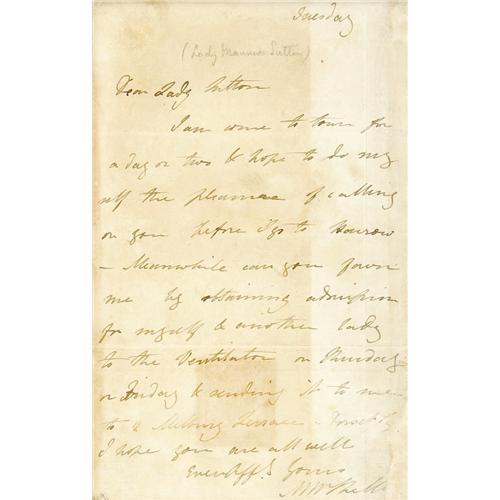 Tuesday
(Lady Manners Sutton)
Dear Lady Sutton
I am come to town for
a day or two & hope to do my
self the pleasure of calling
on you before I go to Harrow
– Meanwhile can you favour
me by obtaining admission
for myself & another lady
to the Ventilator on Thursday
or Friday & sending it to me
to
I hope you are all well
Ever Yours
MWShelley